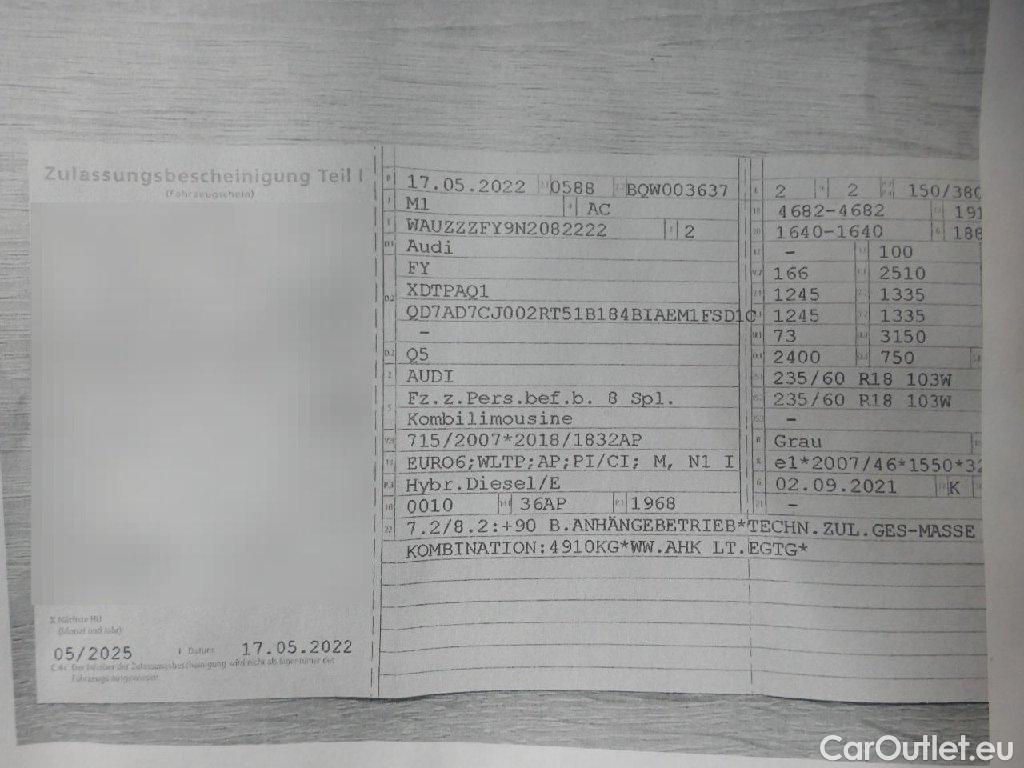 Zulassungsbescheinigung Teil I
(Fahrzeugschein)
17.05.2022 0588 BQW003637
M1 AC
WAUZZZFY9N2082222 2
Audi
FY
XDTPAQ1
QD7AD7CJ002RT51B184BIAEM1FSD1C
–
Q5
AUDI
Fz.z.Pers.bef.b. 8 Spl.
Kombilimousine
715/2007*2018/1832AP
EURO6;WLTP;AP;PI/CI; M, N1 I
Hybr.Diesel/E
0010 36AP 1968
7.2/8.2:+90 B.ANHÄNGEBETRIEB*TECHN.ZUL.GES-MASSE
KOMBINATION:4910KG*WW.AHK LT.EGTG*
2 2 150/380
4682-4682 191
1640-1640 188
– 100
166 2510
1245 1335
1245 1335
73 3150
2400 750
235/60 R18 103W
235/60 R18 103W
–
Grau
e1*2007/46*1550*32
02.09.2021 K
–
X Nächste HU
(Monat und Jahr)
05/2025 I Datum 17.05.2022
C.4c Der Inhaber der Zulassungsbescheinigung wird nicht als Eigentümer des
Fahrzeugs ausgewiesen.
CarOutlet.eu